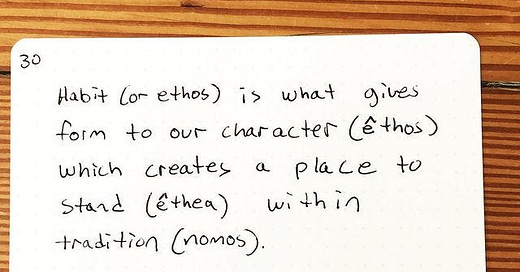 30
Habit (or ethos) is what gives
form to our character (êthos)
which creates a place to
stand (êthea) within
tradition (nomos).